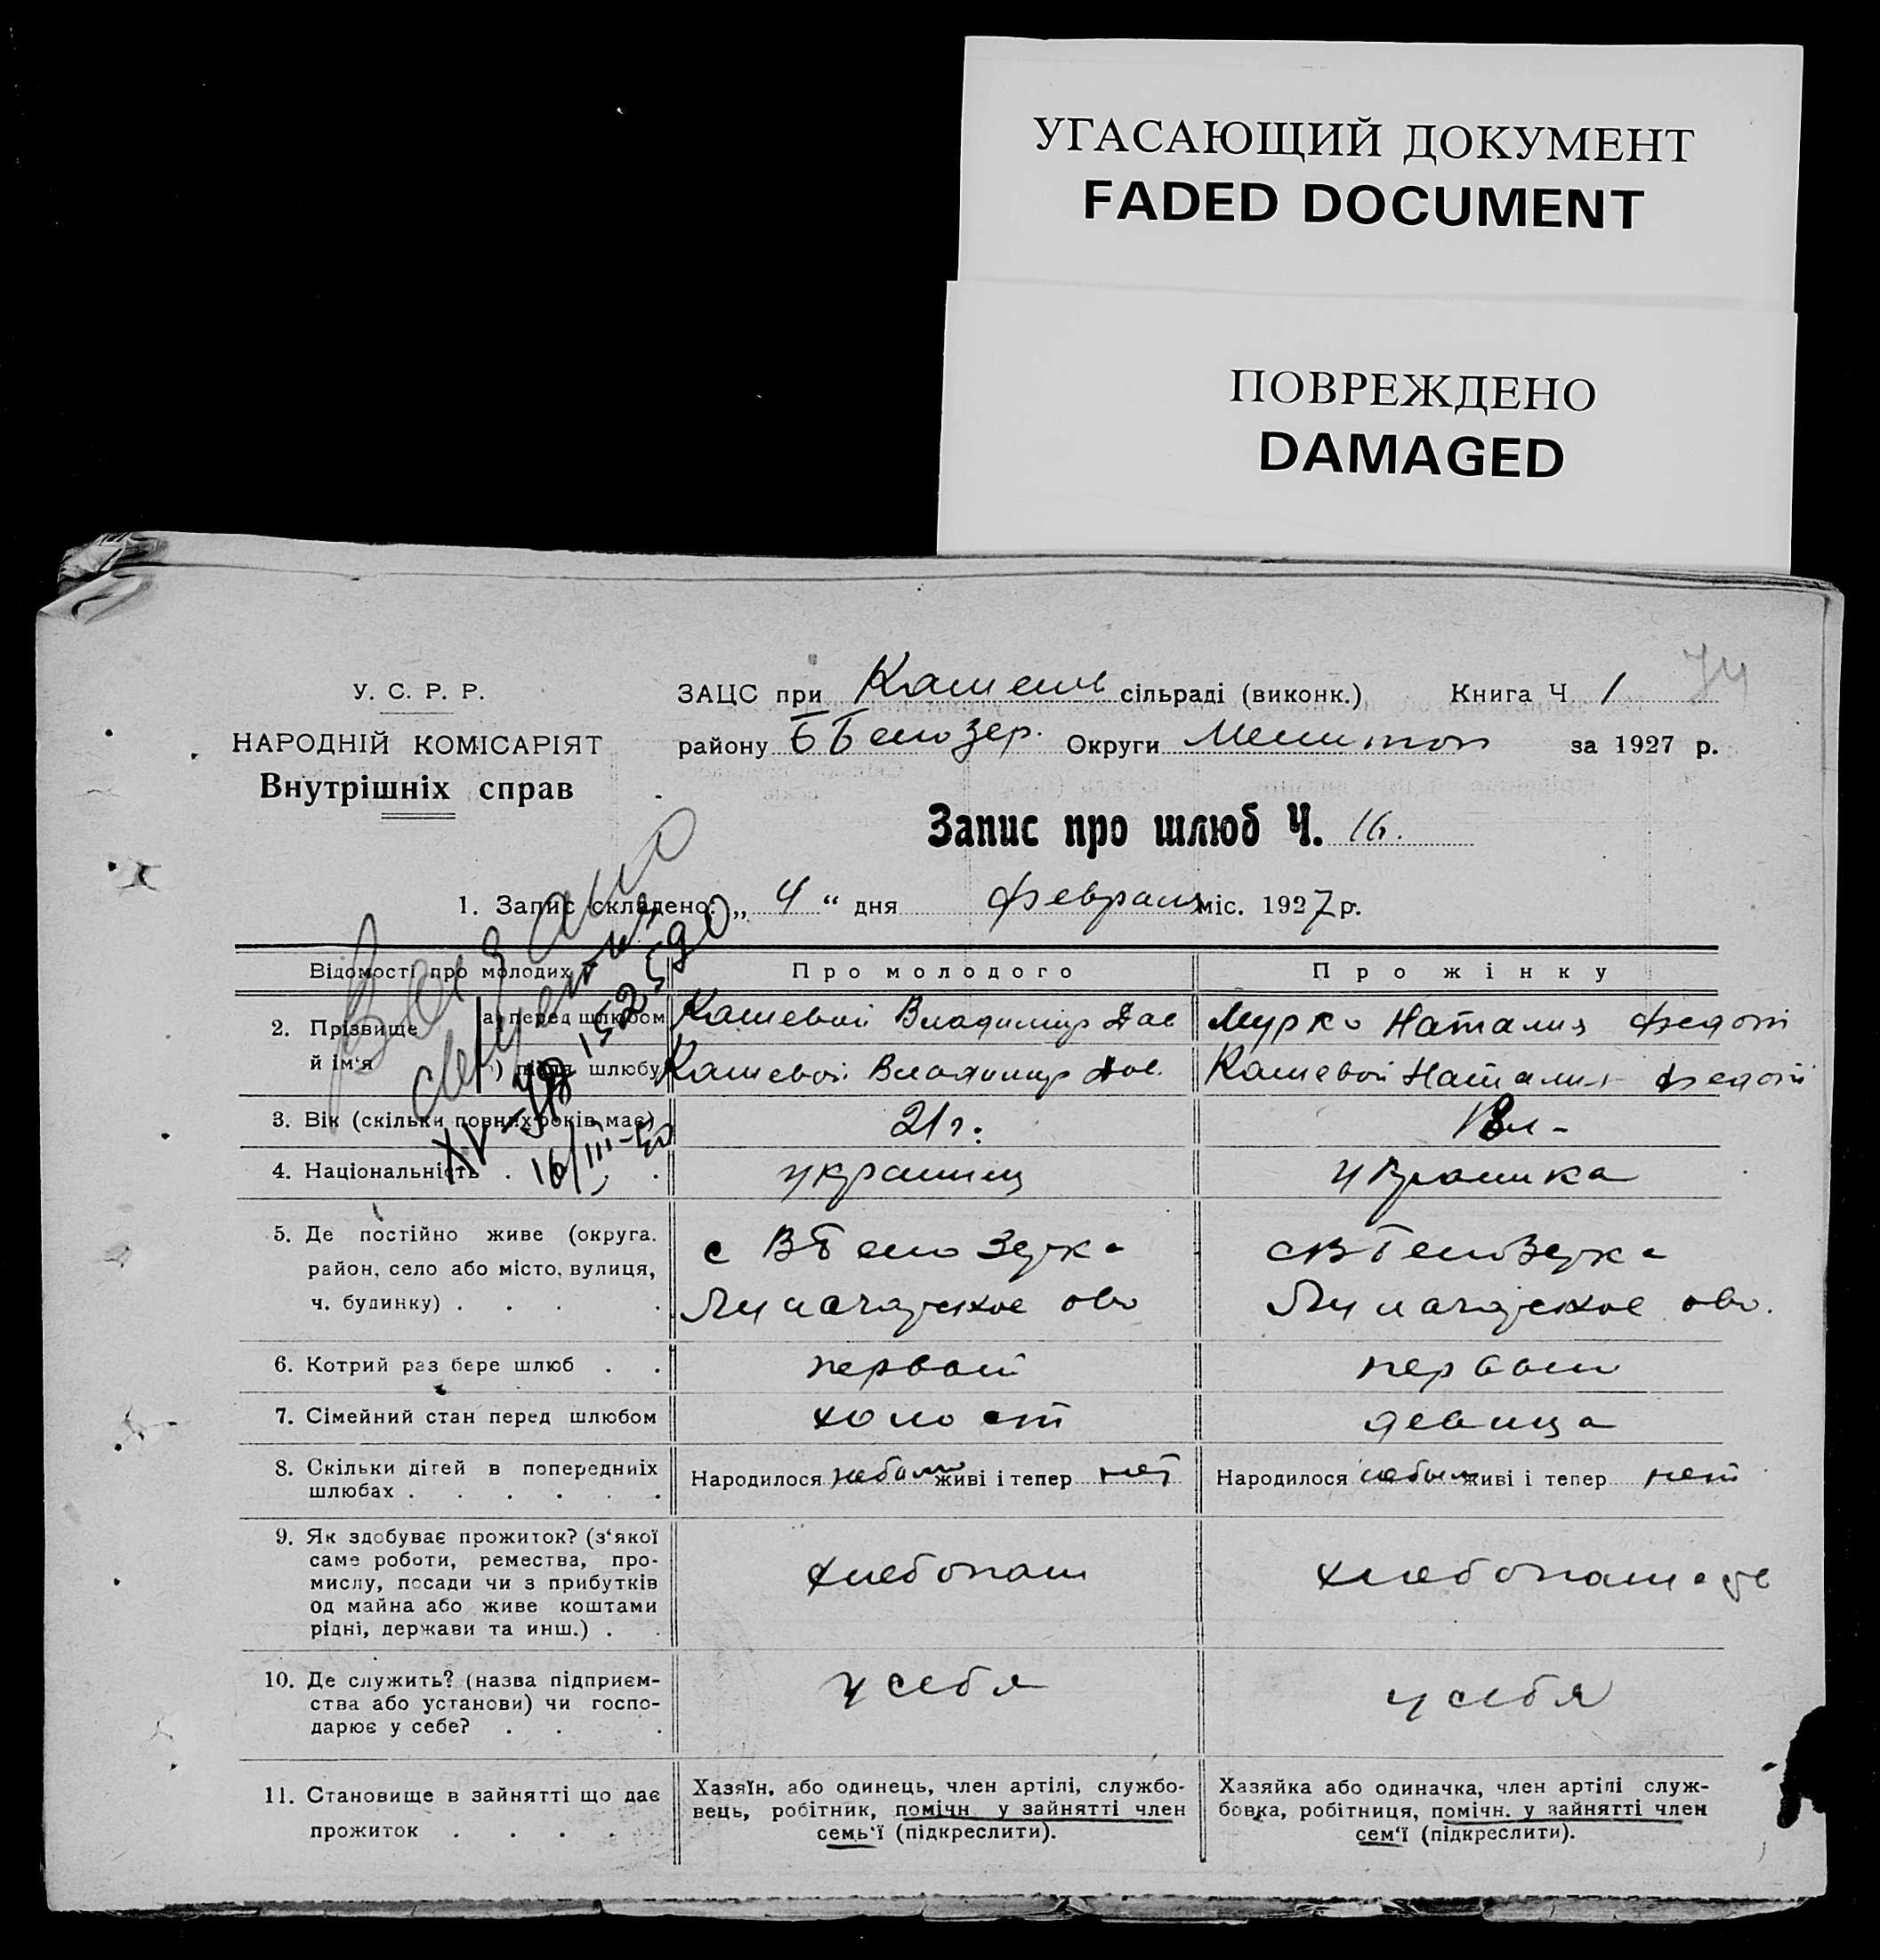 УГАСАЮЩИЙ ДОКУМЕНТ
FADED DOCUMENT
ПОВРЕЖДЕНО
DAMAGED
74
У. С. Р. Р.
НАРОДНІЙ КОМІСАРІЯТ
Внутрішніх справ
ЗАЦС при сільраді (виконк.) Книга Ч 1
району Округи Мелитоп за 1927 р.
Запис про шлюб Ч. 16.
1. Запис складено: „ 4 “ дня февраля міс. 1927 р.
Відомості про молодих Про молодого Про жінку
2. Прізвище й ім‘я
а) перед шлюбом Кашевой Владимир Дав Мурко Наталия Федот
після шлюбу Кашевой Владимир Дав. Кашевой Наталия Федот
16/III-50
3. Вік (скільки повних років має) 21 г. 18 л-
4. Національність . . украинец украинка
5. Де постійно живе (округа. с ВБелозерка с ВБелозерка
район, село або місто, вулиця,
ч. будинку) . . . . ово ово.
6. Котрий раз бере шлюб . . первый первый
7. Сімейний стан перед шлюбом холост девица
8. Скільки дітей в попередніх Народилося небыло живі і тепер нет Народилося небыло живі і тепер нет
шлюбах . . . . . .
9. Як здобуває прожиток? (з‘якої
саме роботи, ремества, про-
мислу, посади чи з прибутків хлебопаш хлебопаш
од майна або живе коштами
рідні, держави та инш.) . .
10. Де служить? (назва підприєм- у себя у себя
ства або установи) чи госпо-
дарює у себе? . . .
11. Становище в зайнятті що дає Хазяїн, або одинець, член артілі, службо- Хазяйка або одиначка, член артілі служ-
вець, робітник, помічн у зайнятті член бовка, робітниця, помічн. у зайнятті член
прожиток . . . . . семь‘ї (підкреслити). сем‘ї (підкреслити).